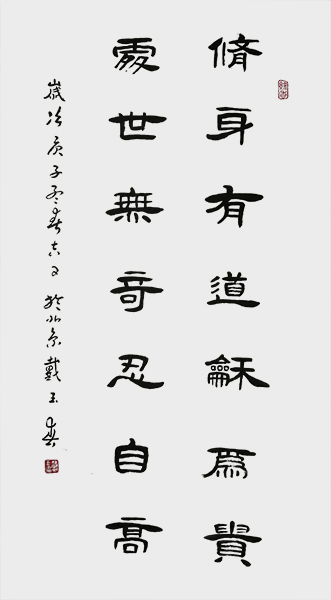 脩身有道龢爲貴
處世無奇忍自高
歲次庚子吉日於北京戴玉